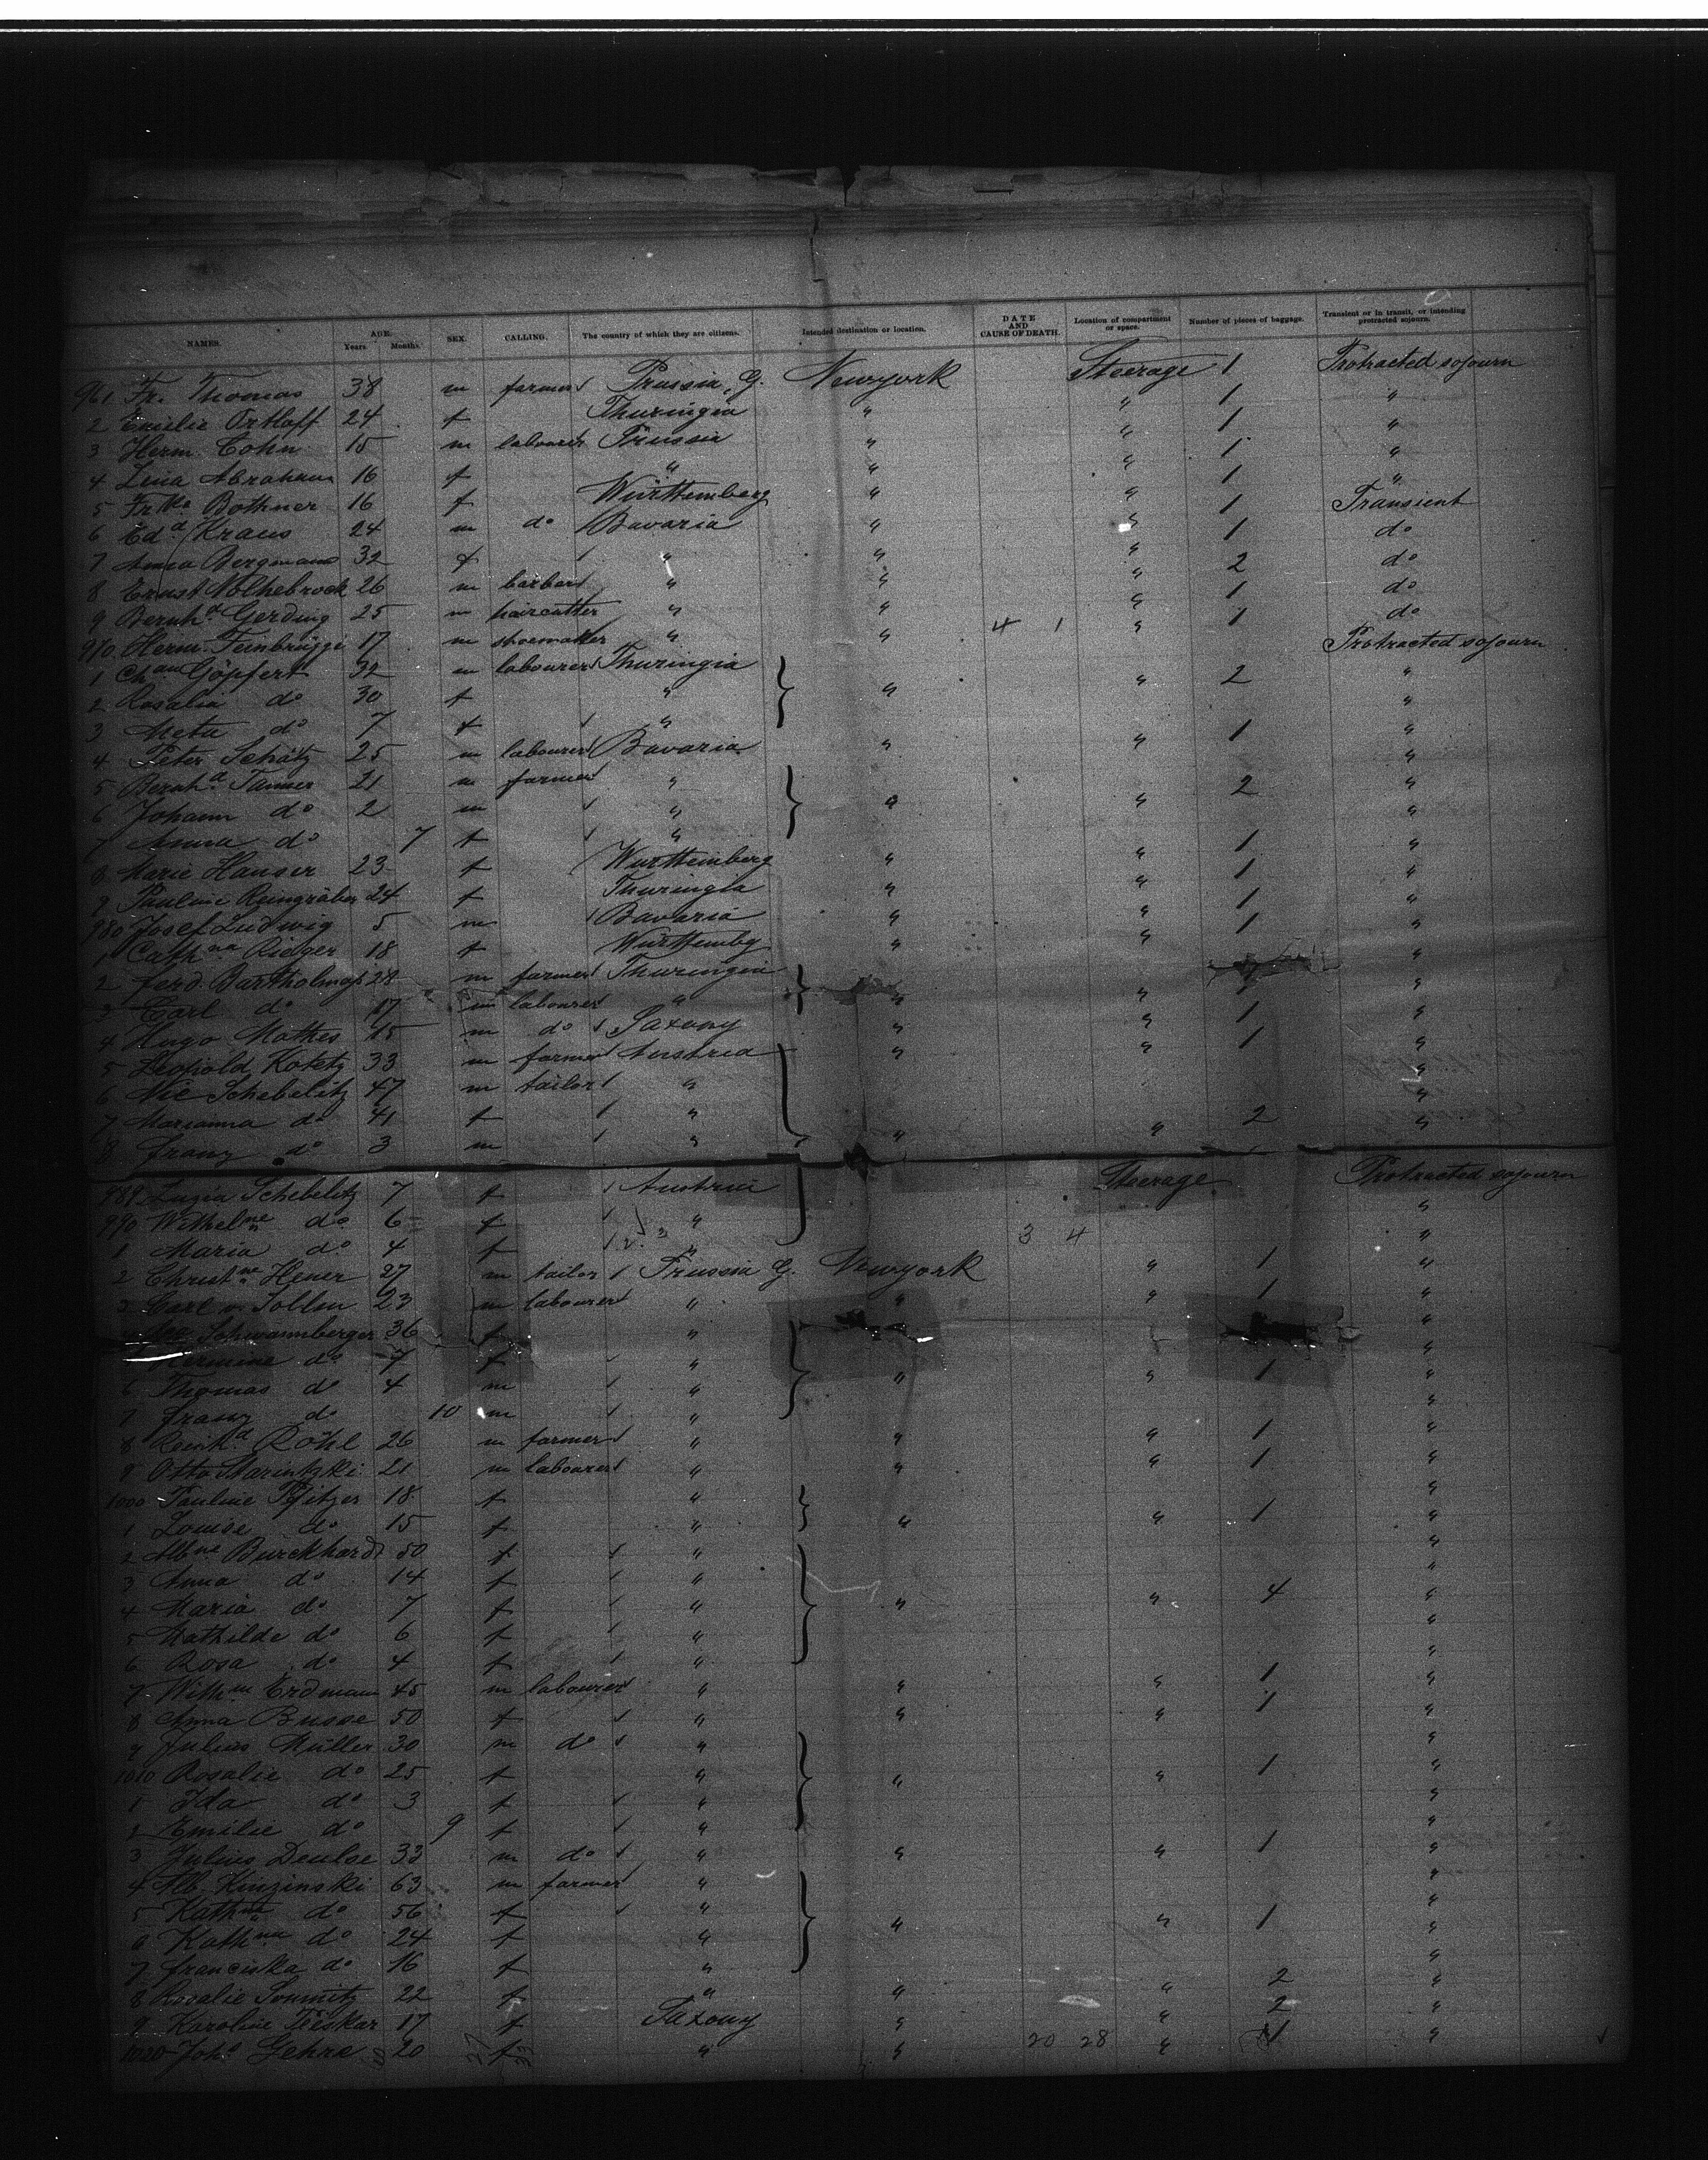 NAMES. AGE. Years. Months. SEX. CALLING. The country of which they are citizens. Intended destination or location. DATE AND CAUSE OF DEATH. Location of compartment or space. Number of pieces of baggage. Transient or in transit, or intending protracted sojourn.
961 Fr. Thomas 38 m farmer Prussia, G. Newyork Steerage 1 Protracted sojourn
2 Emilie Ortloff 24 f Thuringia " " 1 "
3 Herm. Cohn 15 m labourer Prussia " " 1 "
4 Lina Abraham 16 f " " " 1 "
5 Frka Bothner 16 f Württemberg " " 1 "
6 Edd Kraus 24 m do Bavaria " " 1 Transient
7 Anna Bergmann 32 f " " " 1 do
8 Ernst Nolthebrock 26 m barber " " " 2 do
9 Bernhd Gerding 25 m haircutter " " " 1 do
970 Herm. 17 m shoemaker " " 4 1 " 1 do
1 Chan Göpfert 32 m labourer Thuringia Protracted sojourn
2 Rosalia do 30 f " " " 2 "
3 Meta do 7 f " "
4 Peter Schätz 25 m labourer Bavaria " " 1 "
5 Bernhd Tanner 21 m farmer " "
6 Johann do 2 m " " " 2 "
7 Anna do 7 f " "
8 Marie Hauser 23 f Württemberg " " 1 "
9 Pauline Reingräber 24 f Thuringia " " 1 "
980 Josef Ludwig 5 m Bavaria " " 1 "
1 Cathna Rieger 18 f Württembg " " 1 "
2 Ferd. Bartholmas 28 m farmer Thuringia "
3 Carl do 17 m labourer " " " 1 "
4 Hugo Mathes 15 m do Saxony " " 1 "
5 Leopold Kotetz 33 m farmer Austria " " 1 "
6 Nic Schebelitz 47 m tailor " "
7 Marianna do 41 f " "
8 Franz do 3 m " " " 2 "
989 Luzia Schebelitz 7 f Austria Steerage Protracted sojourn
990 Wilhelne do 6 f " "
1 Maria do 4 f " 3 4 "
2 Christne Heuer 27 m tailor Prussia G. Newyork " 1 "
3 Carl v. Sollen 23 m labourer " " " 1 "
Schwannberger 36 f " "
Hermine do 7 f " "
6 Thomas do 4 m " " " 1 "
7 Franz do 10 m " "
8 Reinhd Röhl 26 m farmer " " " 1 "
9 Otto 21 m labourer " " " 1 "
1000 Pauline Pfitzer 18 f " "
1 Louise do 15 f " " " 1 "
2 Albne Burckhardt 50 f " "
3 Anna do 14 f " "
4 Maria do 7 f " " " 4 "
5 Mathilde do 6 f " "
6 Rosa do 4 f " "
7 Wilhm Erdmann 45 m labourer " " " 1 "
8 Anna Busse 50 f " " " 1 "
9 Julius Müller 30 m do " "
1010 Rosalie do 25 f " " " 1 "
1 Ida do 3 f " "
2 Emilie do 9 f " "
3 Julius 33 m do " " " 1 "
4 Alb. Kinzinski 63 m farmer " "
5 Kathne do 56 f " "
6 Kathna do 24 f " " " 1 "
7 Franciska do 16 f " "
8 Rosalie 22 f " " " 2 "
9 Karoline 17 f Saxony " " 2 "
1020 Joha Gehre 20 f " " 20 28 " 1 "